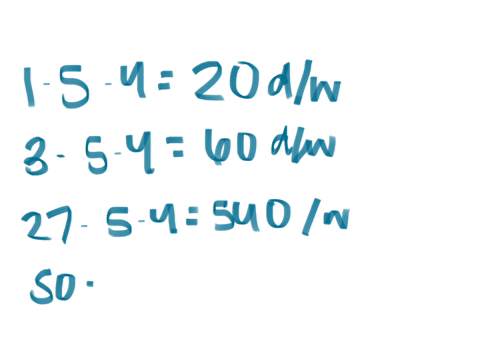 1·5·4 = 20 d/w
3·5·4 = 60 d/w
27·5·4 = 540 /w
50·